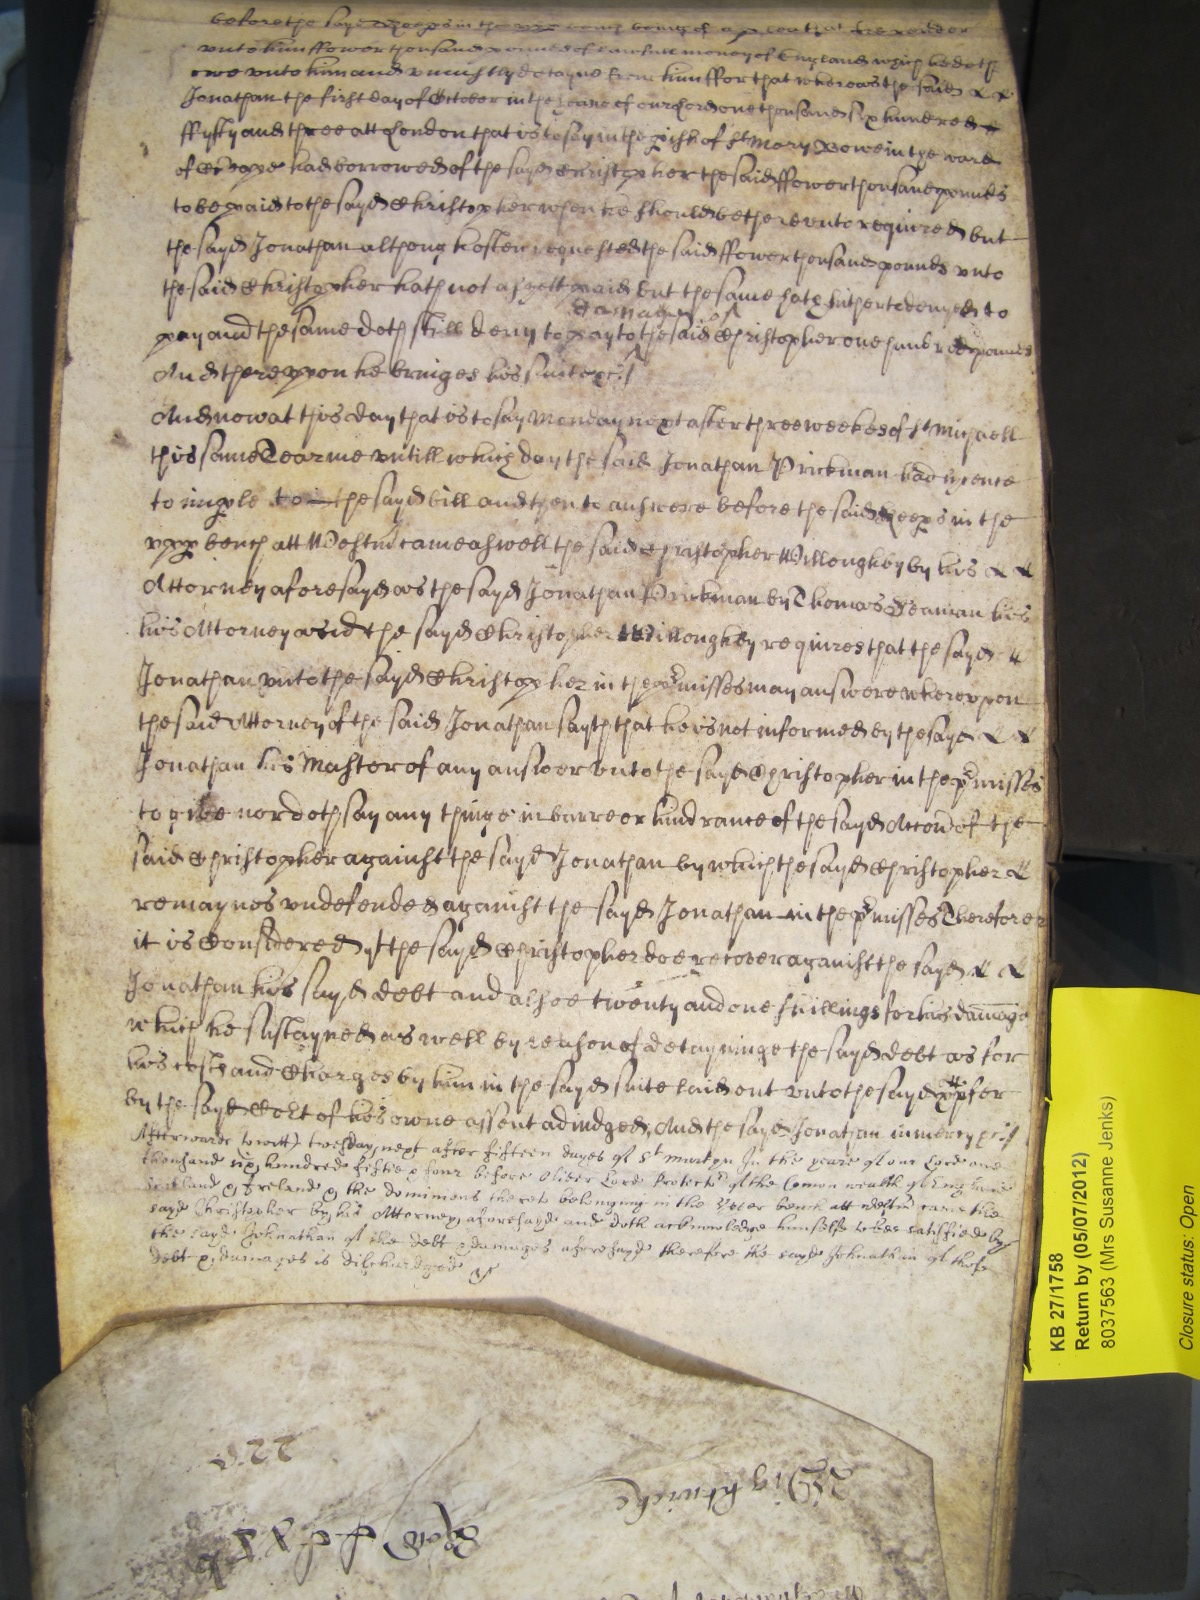 before the sayd keepers in the upper bench being of a plea that he render
unto him ffower thousand pounds of lawfull money of England which he doth
owe unto him and uniustly detayne from him ffor that whereas the said
Jonathan the first day of October in the yeare of our Lord one thousand six hundred
ffyfty and three att London that is to say in the pish of St Mary Bowe in the ward
of had borrowed of the sayd Christopher the said ffower thousand pounds
to be paid to the sayd Christopher when he should be thereunto required but
the sayd Jonathan although often requested the said ffower thousand pounds unto
the said Christopher hath not as yett paid but the same hath hitherto denyed to
damage of
pay and the same doth still deny to pay to the said Christopher one hundred pounds
And thereupon he bringes his suite &c
And now at this day that is to say Monday next after three weekes of St Michaell
this same Tearme untill which day the said Jonathan Prickman had lycence
to imple to the sayd bill and then to answere before the said keeps in the
upp bench att Westm came aswell the said Christopher Willoughby by his
Attorney aforesayd as the sayd Jonathan Prickman by Thomas Seaman his
his Attorney and the sayd Christopher Willoughby requires that the sayd
Jonathan unto the sayd Christopher in the pmisses may answere whereupon
the said Attorney of the said Jonathan sayth that he is not informed by the sayd
Jonathan his Master of any answer unto the sayd Christopher in the pmisses
to give nor doth say any thinge in barre or hindrance of the sayd Accon of the
said Christopher against the sayd Jonathan by which the sayd Christopher
remaynes undefended against the sayd Jonathan in the pmisses Therefore
it is Considered yt the sayd Christopher doe recover against the sayd
Jonathan his sayd debt and alsoe twenty and one shillings for his damage
which he sustayned as well by reason of detayninge the sayd debt as for
his costs and Charges by him in the sayd suite laid out unto the sayd Xpofer
by the sayd Court of his owne assent adiudged, And the sayd Jonathan in mercy &c
Afterwards (to witt) tuesday next after fifteen dayes of St Martyn In the yeare of our Lord one
thousand six hundred fiftie & four before Oliver Lord Protector of the Comon wealth of England
Scotland & Ireland & the dominions thereto belonging in the Upper bench att Westm came the
sayd Christopher by his Attorney aforesayd and doth acknowledge himselfe to bee satisfied by
the sayd Johnathan of the debt & damages aforesayd therefore the sayd Johnathan of those
debt & damages is discharged &c
KB 27/1758
Return by (05/07/2012)
8037563 (Mrs Susanne Jenks)
Closure status: Open